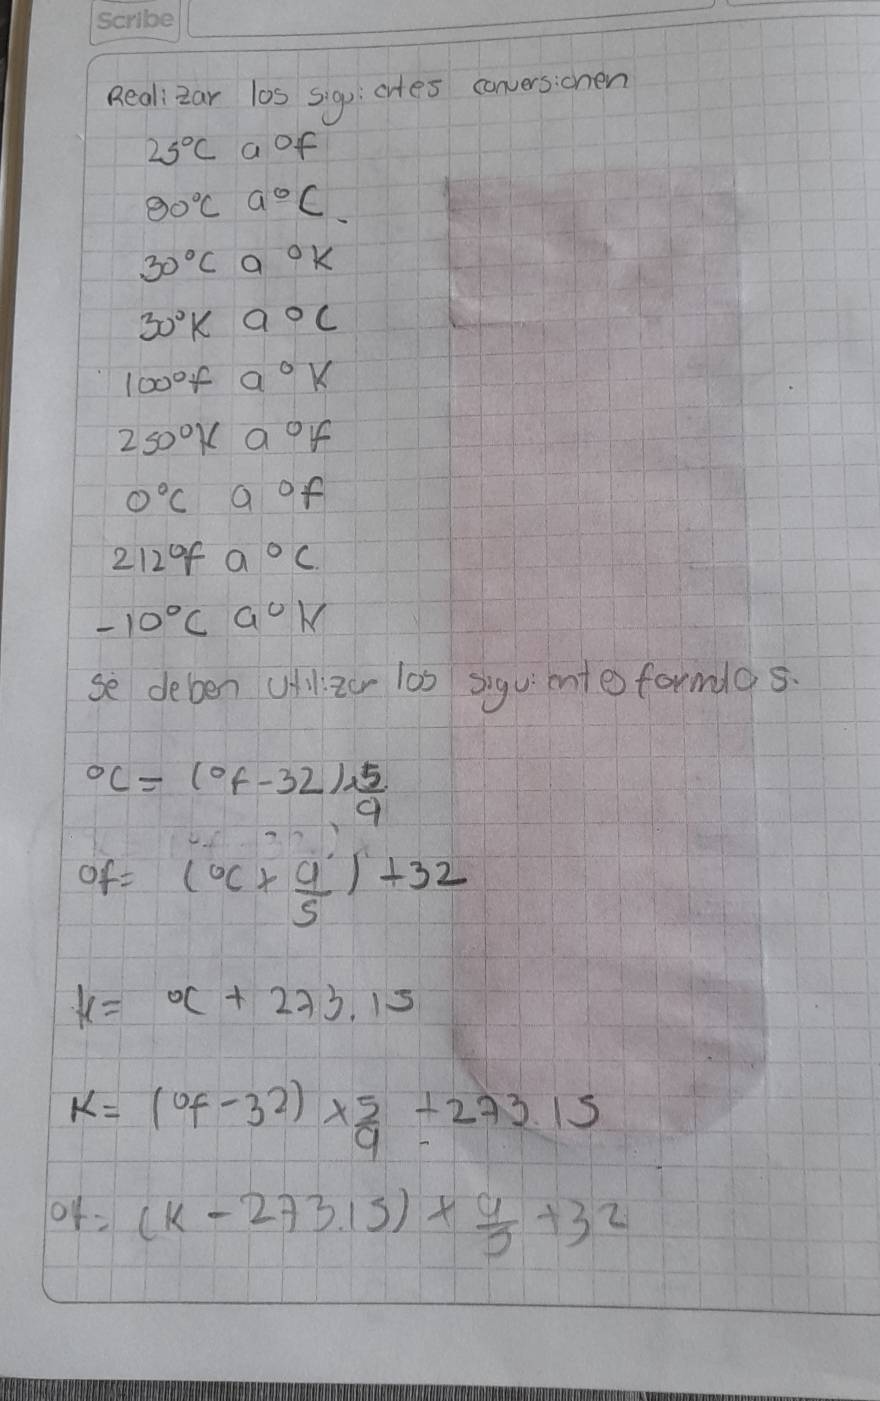 Scribe
Realizar los siguientes conversionen
25°C a °f
80°C a °C.
30°C a °K
30°K a °C
100°f a °K
250°K a °f
0°C a °f
212°f a °C.
-10°C a °K
se deben utilizar los siguiente formulas.
°C = (°f - 32) x 5/9
°f = (°C x 9/5) + 32
K = °C + 273.15
K = (°f - 32) x 5/9 + 273.15
°f = (K - 273.15) x 9/5 + 32